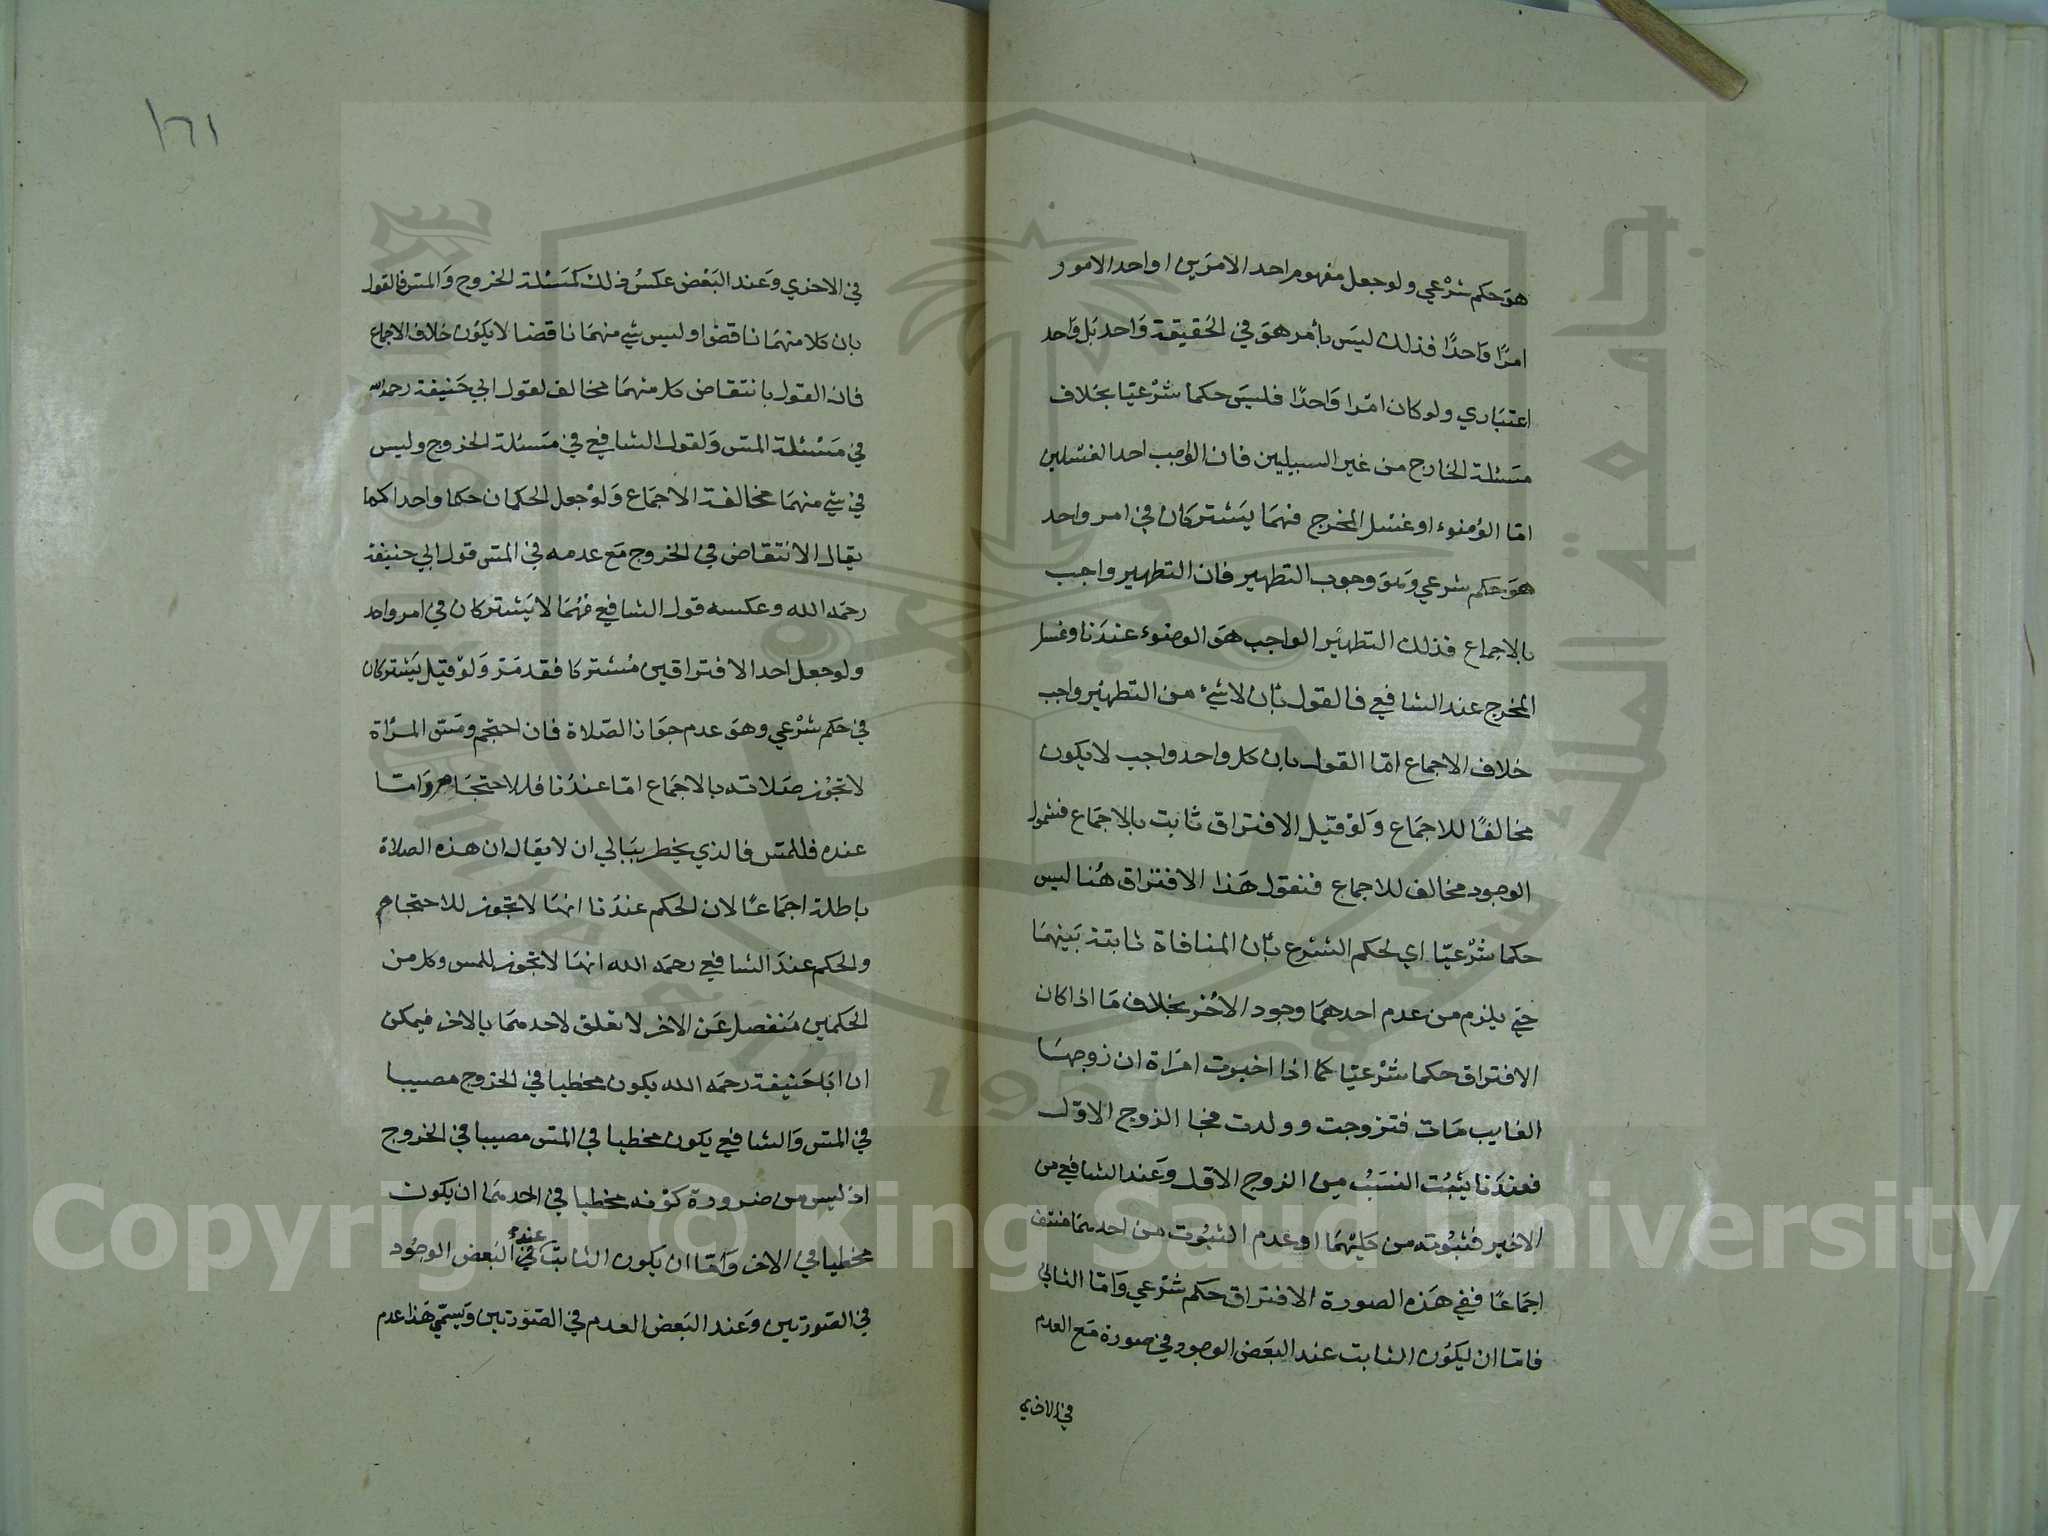 هو حكم شرعي ولو جعل مفهوم احد الامرين او احد الامور
امرا واحدا فذلك ليس بامر هو في الحقيقة واحد بل واحد
اعتباري ولو كان امرا واحدا فليس حكما شرعيا بخلاف
مسئلة الخارج من غير السبيلين فان الواجب احد الغسلين
اما الوضوء او غسل المخرج فهما يشتركان في امر واحد
هو حكم شرعي وهو وجوب التطهير فان التطهير واجب
بالاجماع فذلك التطهير الواجب هو الوضوء عندنا وغسل
المخرج عند الشافعي فالقول بان لا شيء من التطهير واجب
خلاف الاجماع اما القول بان كل واحد واجب لا يكون
مخالفا للاجماع ولو قيل الافتراق ثابت بالاجماع فشمول
الوجود مخالف للاجماع فنقول هذا الافتراق هنا ليس
حكما شرعيا اي لحكم الشرع بان المنافاة ثابتة بينهما
حتي يلزم من عدم احدهما وجود الاخر بخلاف ما اذا كان
الافتراق حكما شرعيا كما اذا اخبرت امراة ان زوجها
الغايب مات فتزوجت وولدت فجا الزوج الاول
فعندنا يثبت النسب من الزوج الاول وعند الشافعي من
الاخير فثبوته من كليهما او عدم الثبوت من احدهما منتف
اجماعا ففي هذه الصورة الافتراق حكم شرعي واما الثاني
فاما ان يكون الثابت عند البعض الوجود في صورة مع العدم
في الاخري
١٦١
في الاخري وعند البعض عكس ذلك كمسئلة الخروج والمس فالقول
بان كلا منهما ناقض او ليس شي منهما ناقضا لا يكون خلاف الاجماع
فان القول بانتقاض كل منهما مخالف لقول ابي حنيفة رحمه الله
في مسئلة المس ولقول الشافعي في مسئلة الخروج وليس
في شي منهما مخالفة الاجماع ولو جعل الحكمان حكما واحدا كما
يقال الانتقاض في الخروج مع عدمه في المس قول ابي حنيفة
رحمه الله وعكسه قول الشافعي فهما لا يشتركان في امر واحد
ولو جعل احد الافتراقين مشتركا فقد مر ولو قيل يشتركان
في حكم شرعي وهو عدم جواز الصلاة فان احتجم ومس المراة
لا تجوز صلاته بالاجماع اما عندنا فللاحتجام واما
عنده فللمس فالذي يخطر ببالي ان لا يقال ان هذه الصلاة
باطلة اجماعا لان الحكم عندنا انها لا تجوز للاحتجام
والحكم عند الشافعي رحمه الله انها لا تجوز للمس وكل من
الحكمين منفصل عن الاخر لا تعلق لاحدهما بالاخر فيمكن
ان ابا حنيفة رحمه الله يكون مخطيا في الخروج مصيبا
في المس والشافعي يكون مخطيا في المس مصيبا في الخروج
اذ ليس من ضرورة كونه مخطيا في احدهما ان يكون
مخطيا في الاخر واما ان يكون الثابت عند البعض الوجود
في الصورتين وعند البعض العدم في الصورتين ويسمي هذا عدم
Copyright © King Saud University
1957